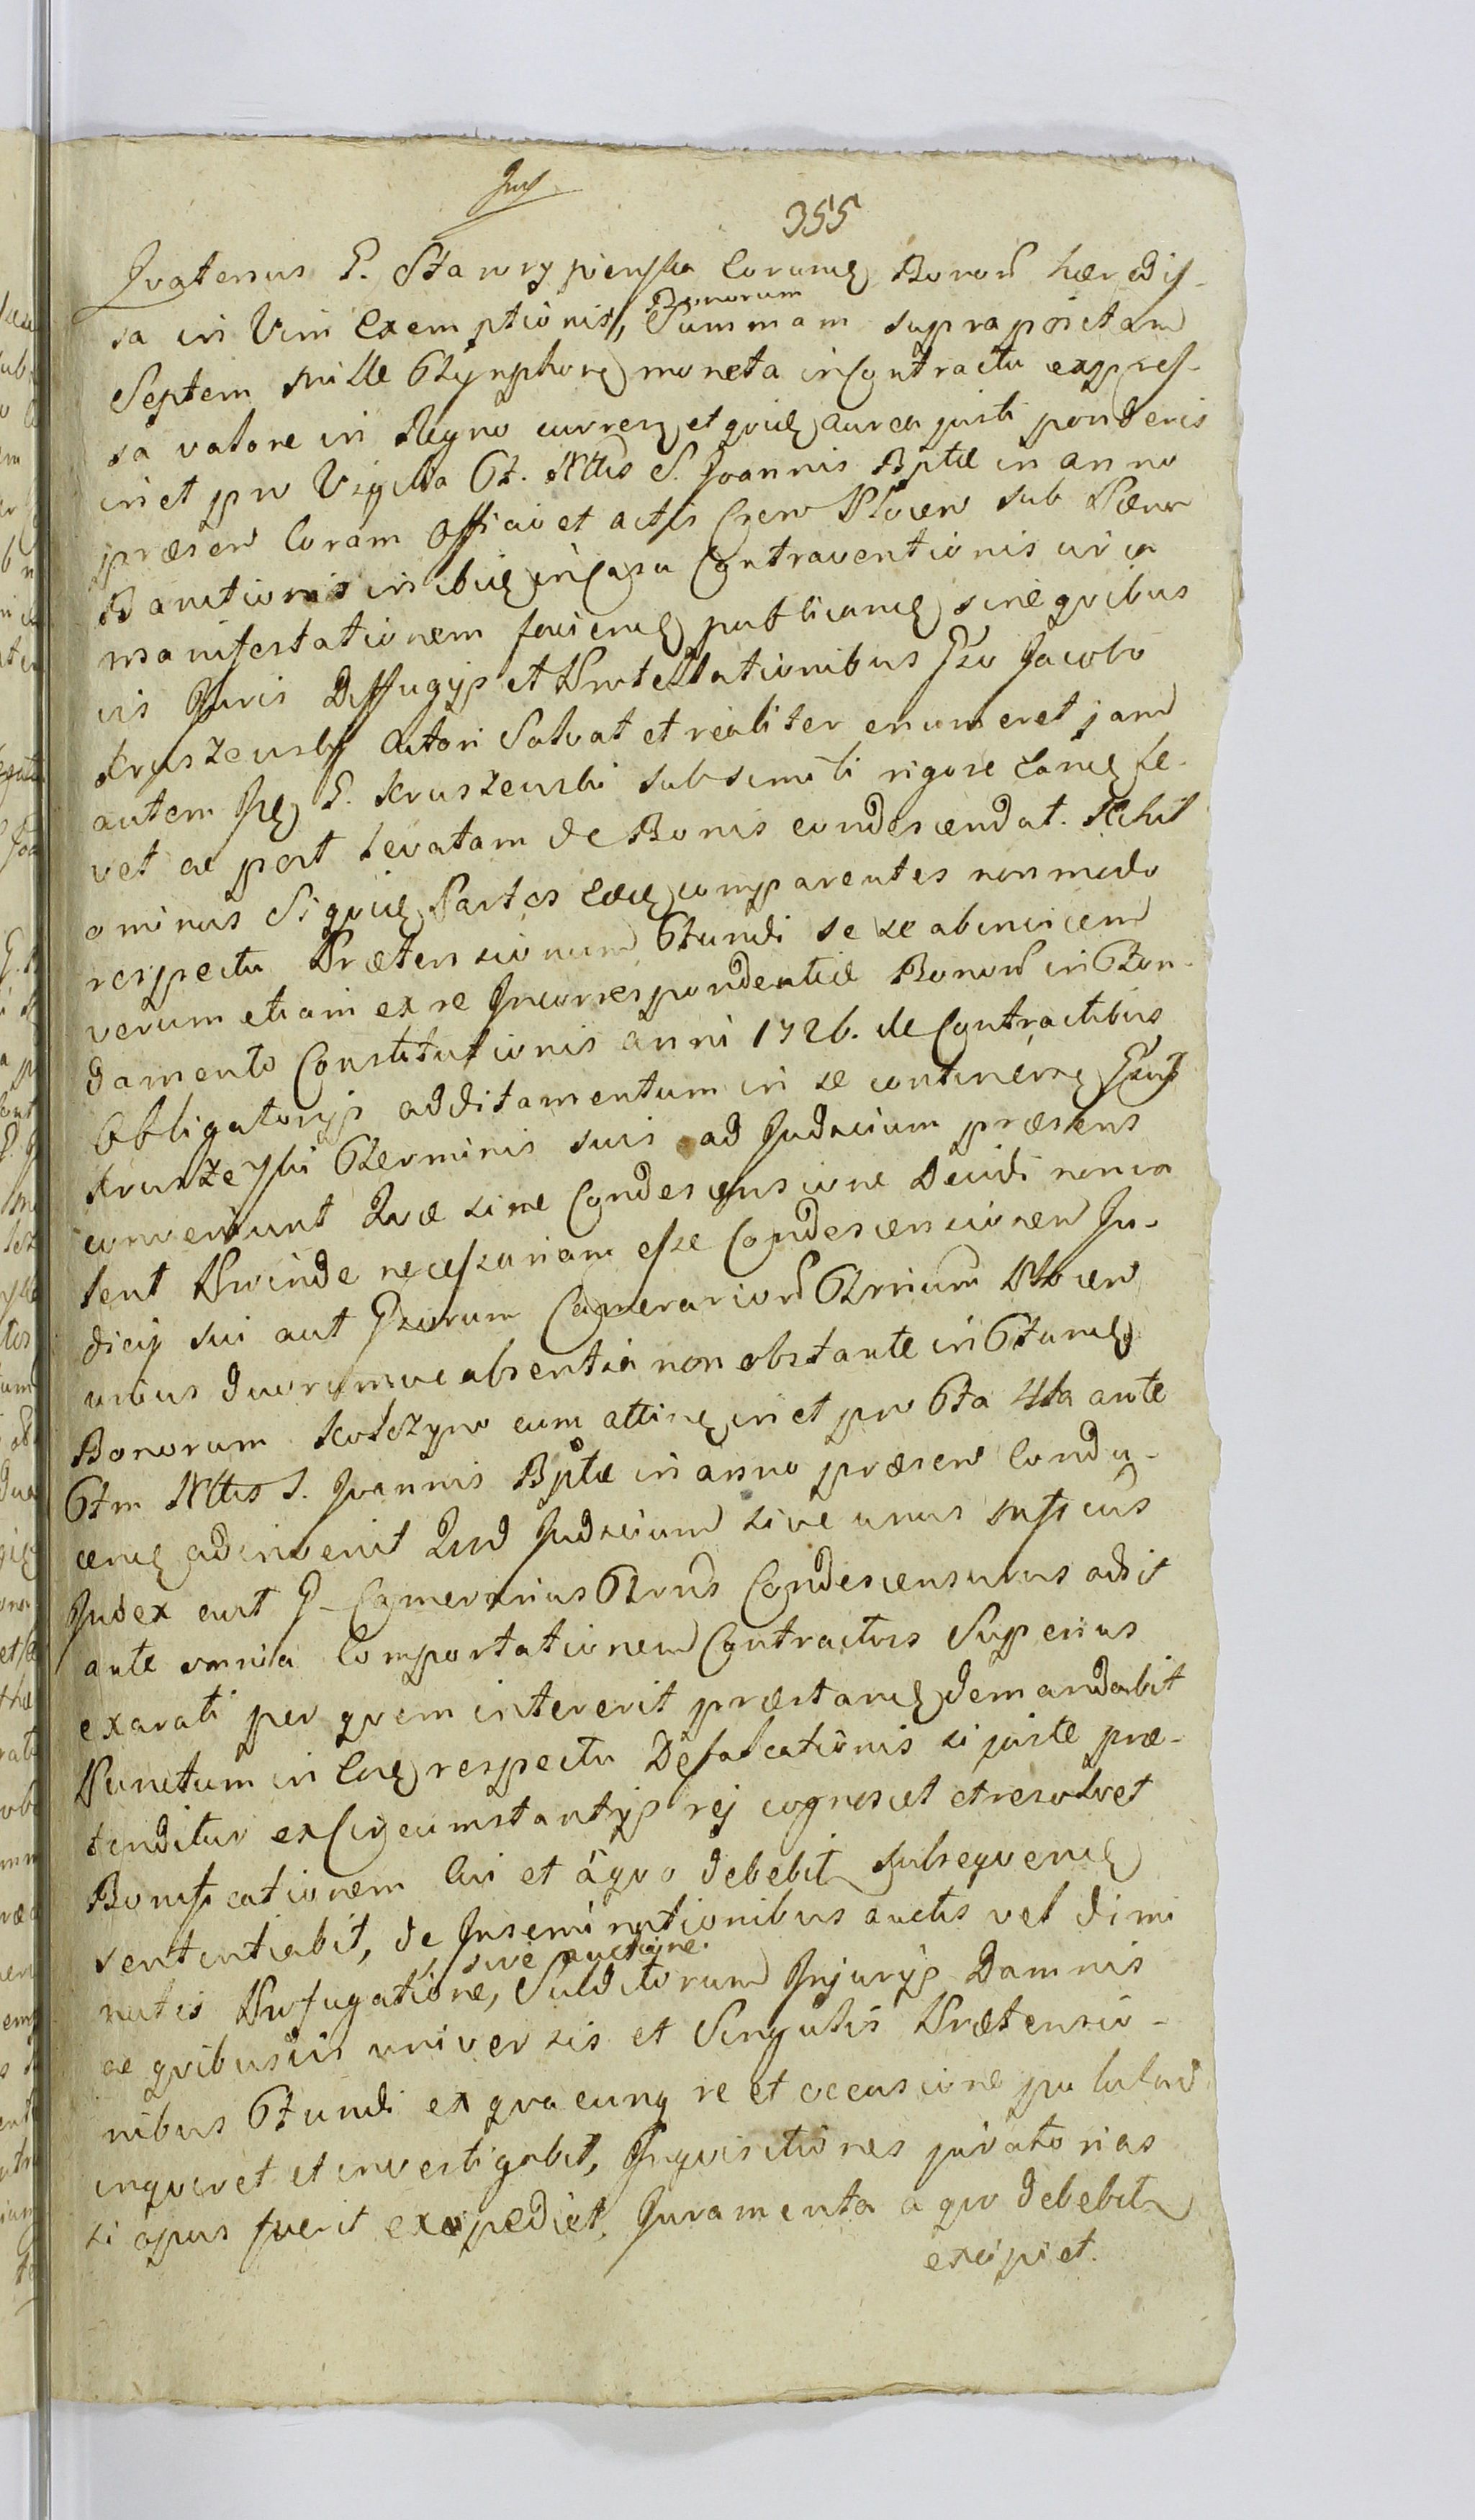 355
Qvatenus G. Starorypienska Earund Bonorũ hæredis-
sa in Vim Exemptionis, Bonorum Summam suprapositam
Septem mille Tynphon moneta in Contractu expres-
sa valore in Regno curren et qvid aurea justi ponderis
in et pro Vigilia Fti Nttis S. Joannis Bptæ in anno
præsen Coram Officio et actis Cren Plocen sub Pæna
Banitionis in ibid in Casu Contraventionis circa
manifestationem faciend publicand sine qvibus
vis Juris Diffugijs et Protestationibus Gso Jacobo
Kruszewsky Actori Solvat et realiter enumeret jam
autem Id G. Kruszewski sub simili rigore Eand le-
vet ac post levatam de Bonis condescendat. Nihil
ominus Siqvid Partes Eæd comparentes non modo
respectu Prætensionum Fundi se se ab invicem
verum etiam ex re Incorrespondentiæ Bonorũ in Fun-
damento Constitutionis anni 1726. de Contractibus
Obligatorijs additamentum in se continen Gsus
Kruszewski Terminis suis ad Judicium præsens
convenerunt Qvæ sine Condescensione Decidi non va
lent Proinde necessariam esse Condescensionem Ju-
dicij sui aut Gsorum Camerariorũ Trrium Plocen
unius duorumve absentia non obstante in Fund
Bonorum Kolczyno cum attinen in et pro Fria 4ta ante
Ftm Nttis S. Joannis Bptæ in anno præsen Condu-
cend adinvenit Qvod Judicium sive unus Suffi cius
Judex aut G. Camerarius Trris Condescensurus adsit
ante omnia Comportationem Contractus Superius
exarati per qvem intererit præstand demandabit
Punctum in Eod respectu Defalcationis si juste præ-
tenditur ex Circumstantijs rej cognoscet et resolvet
Bonificationem Cui et à qvo debebit subseqvend
sententiabit, de Inseminationibus auctis vel dimi
nutis Profugatione, sive auctione. Subditorum Injurijs Damnis
ac qvibusvis universis et Singulis Prætensio-
nibus Fundi ex qvacunq re et occasione pululan
inqviret et investigabit, Inqvisitiones juratorias
si opus fuerit expediet, Juramenta a qvo debebit
excipiet.